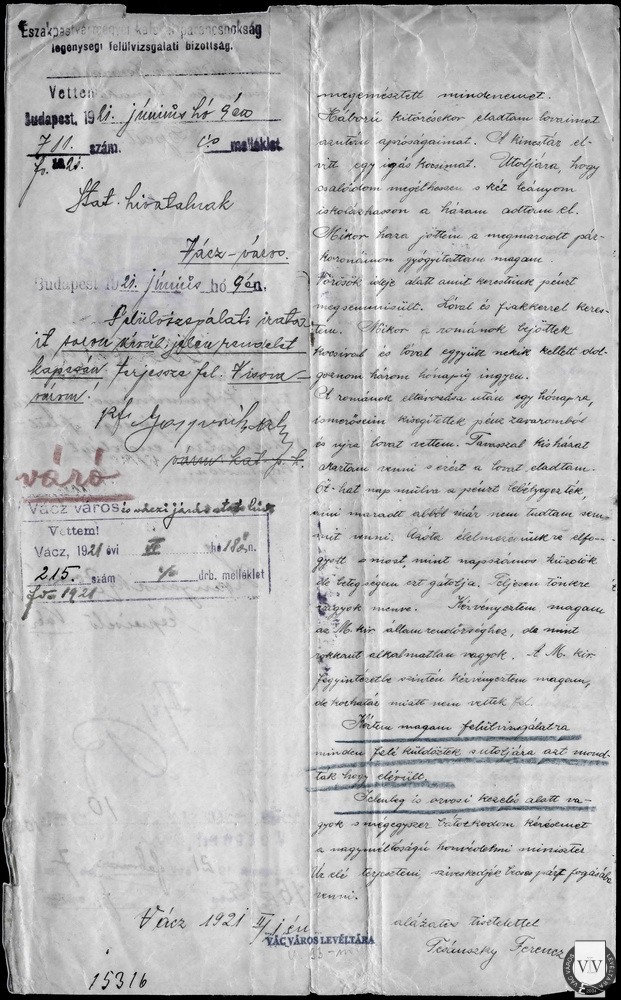 Északpestvármegyei
legénységi felülvizsgálati bizottság.
Vettem
Budapest, 1921. június hó 9én
711 szám. melléklet
Stat. hivatalnak
Vácz-város.
Budapest 1921. június hó 9én.
Felülvizsgálati iratait
jelen rendelet
kapcsán terjessze fel. Vissza-
várom!
váró
Vácz város és váczi járás
Vettem!
Vácz, 1921 évi VI hó 18án.
215. szám drb. melléklet
1921
megemésztett mindenemet.
Háború kitörésekor eladtam lovaimat
azután apróságaimat. A kincstár el-
vitt egy igás kocsimat. Utoljára, hogy
családom megélhessen s két leányom
iskolázhasson a házam adtam el.
Mikor haza jöttem a megmaradt pár
koronámon gyógyíttattam magam.
Vörösök ideje alatt amit kerestünk pénzt
megsemmisült. Lóval és fiakkerrel keres-
tem. Mikor a románok bejöttek
kocsival és lóval együtt nekik kellett dol-
goznom három hónapig ingyen.
A románok eltávozása után egy hónapra,
ismerőseim kisegítettek pénz zavaromból
és ujra lovat vettem. Tavasszal kis házat
akartam venni s ezért a lovat eladtam.
Öt-hat nap mulva a pénzt lebélyegezték,
ami maradt abból már nem tudtam sem-
mit venni. Azóta élelmezésünkre elfo-
gyott s most, mint napszámos küzdök
de betegségem ezt gátolja. Teljesen tönkre
vagyok menve. Kérvényeztem magam
az M. kir. államrendőrséghez, de mint
rokkant alkalmatlan vagyok. A M. kir.
fegyintézetbe szintén kérvényeztem magam,
de korhatár miatt nem vettek fel.
Kértem magam felülvizsgálatra
minden felé küldöztek s utoljára azt mond-
ták hogy elévült.
Jelenleg is orvosi kezelés alatt va-
gyok s mégegyszer bátorkodom kérésemet
a nagyméltóságú honvédelmi miniszter
Úr elé terjeszteni, sziveskedjék becses pártfogásába
venni.
Vácz 1921
alázatos tisztelettel
Ferencz
VÁC VÁROS LEVÉLTÁRA
15316
VÁC VÁROS LEVÉLTÁRA